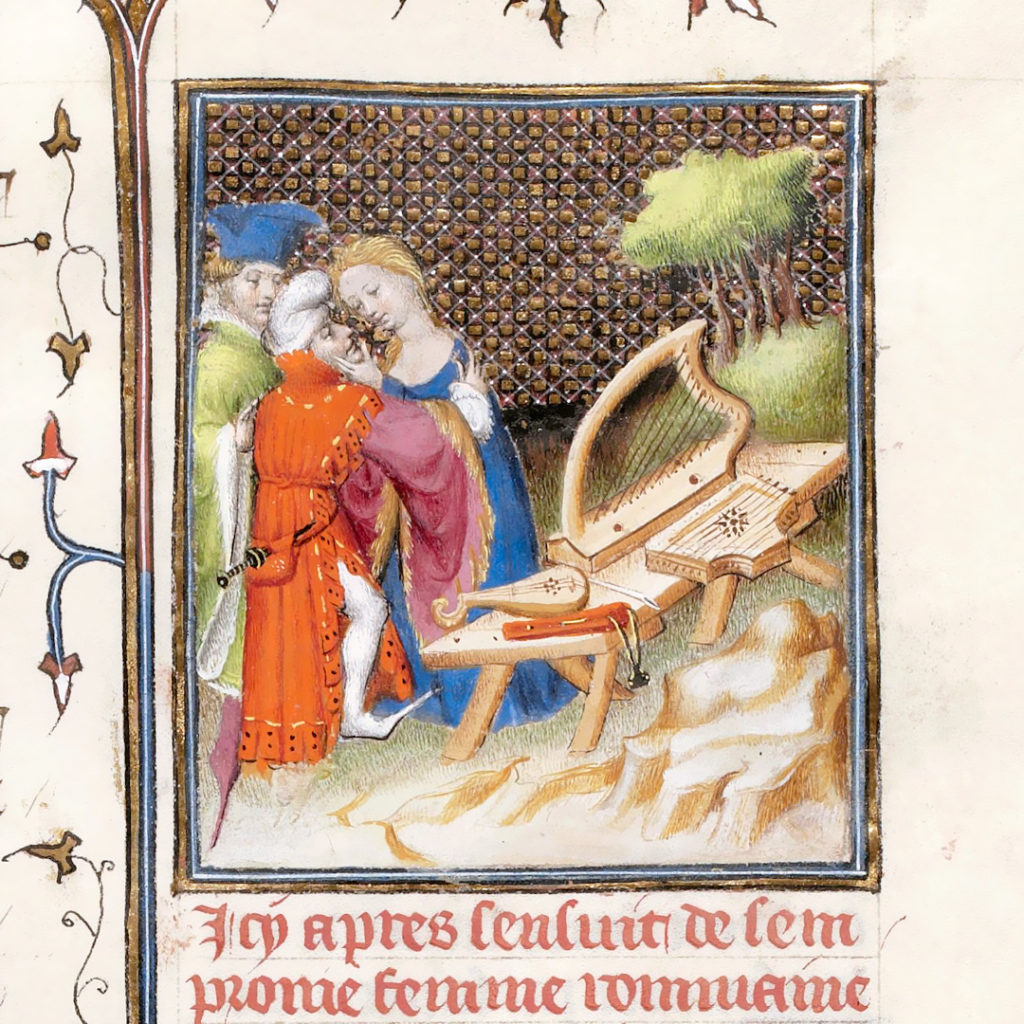 Icy apres sensuit de sem
pronie femme rommaine